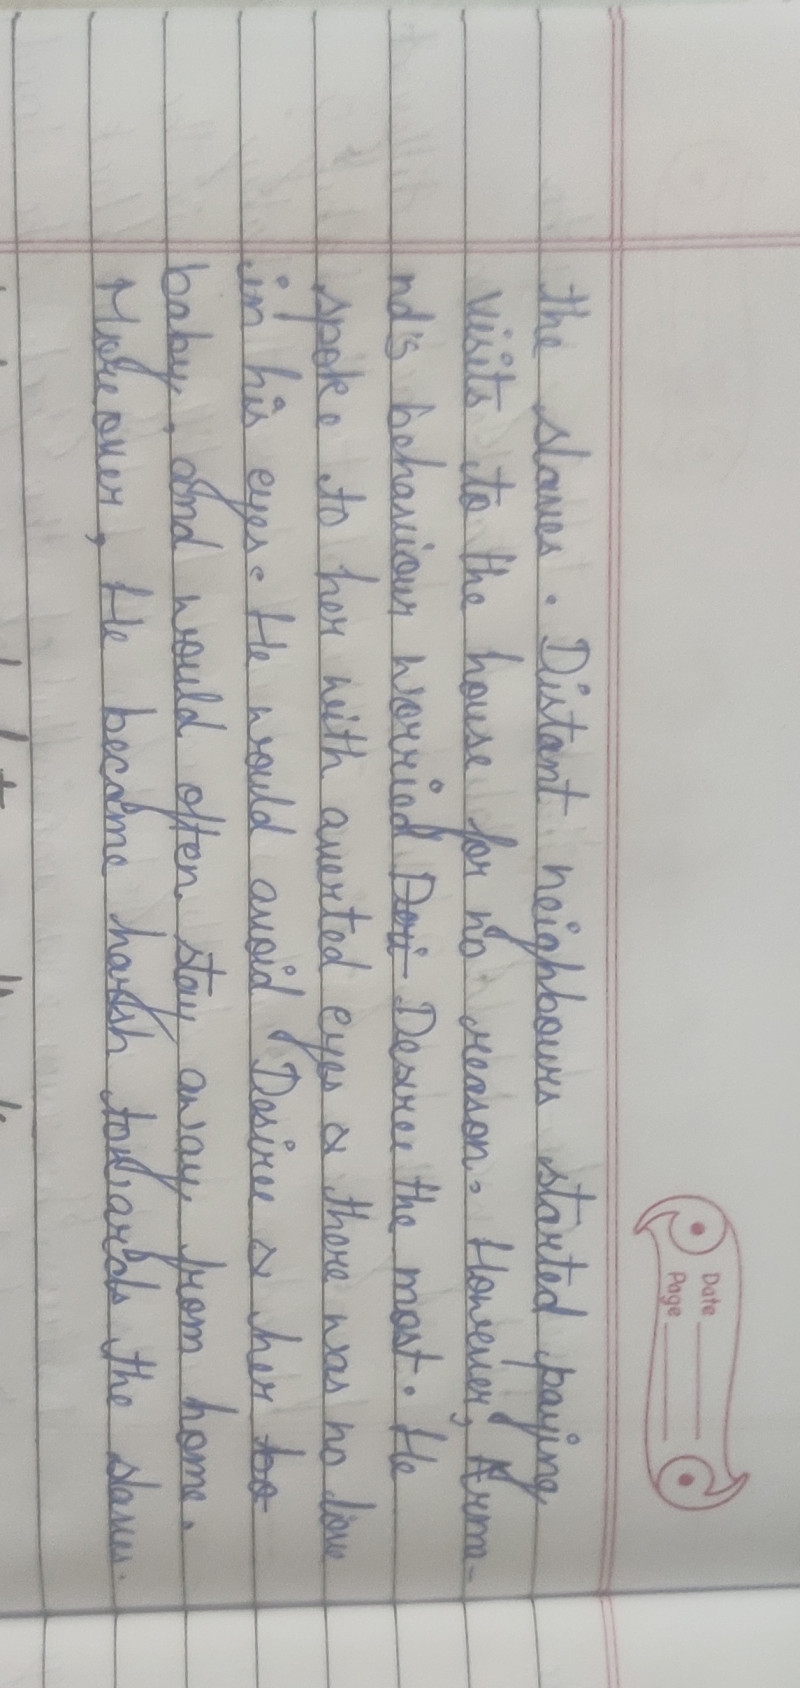 Date
Page
the slaves. Distant neighbours started paying
visits to the house for no reason. However, Arma-
nd's behaviour worried Desiree the most. He
spoke to her with averted eyes & there was no love
in his eyes. He would avoid Desiree & her
baby, and would often stay away from home.
Moreover, He became harsh towards the slaves.